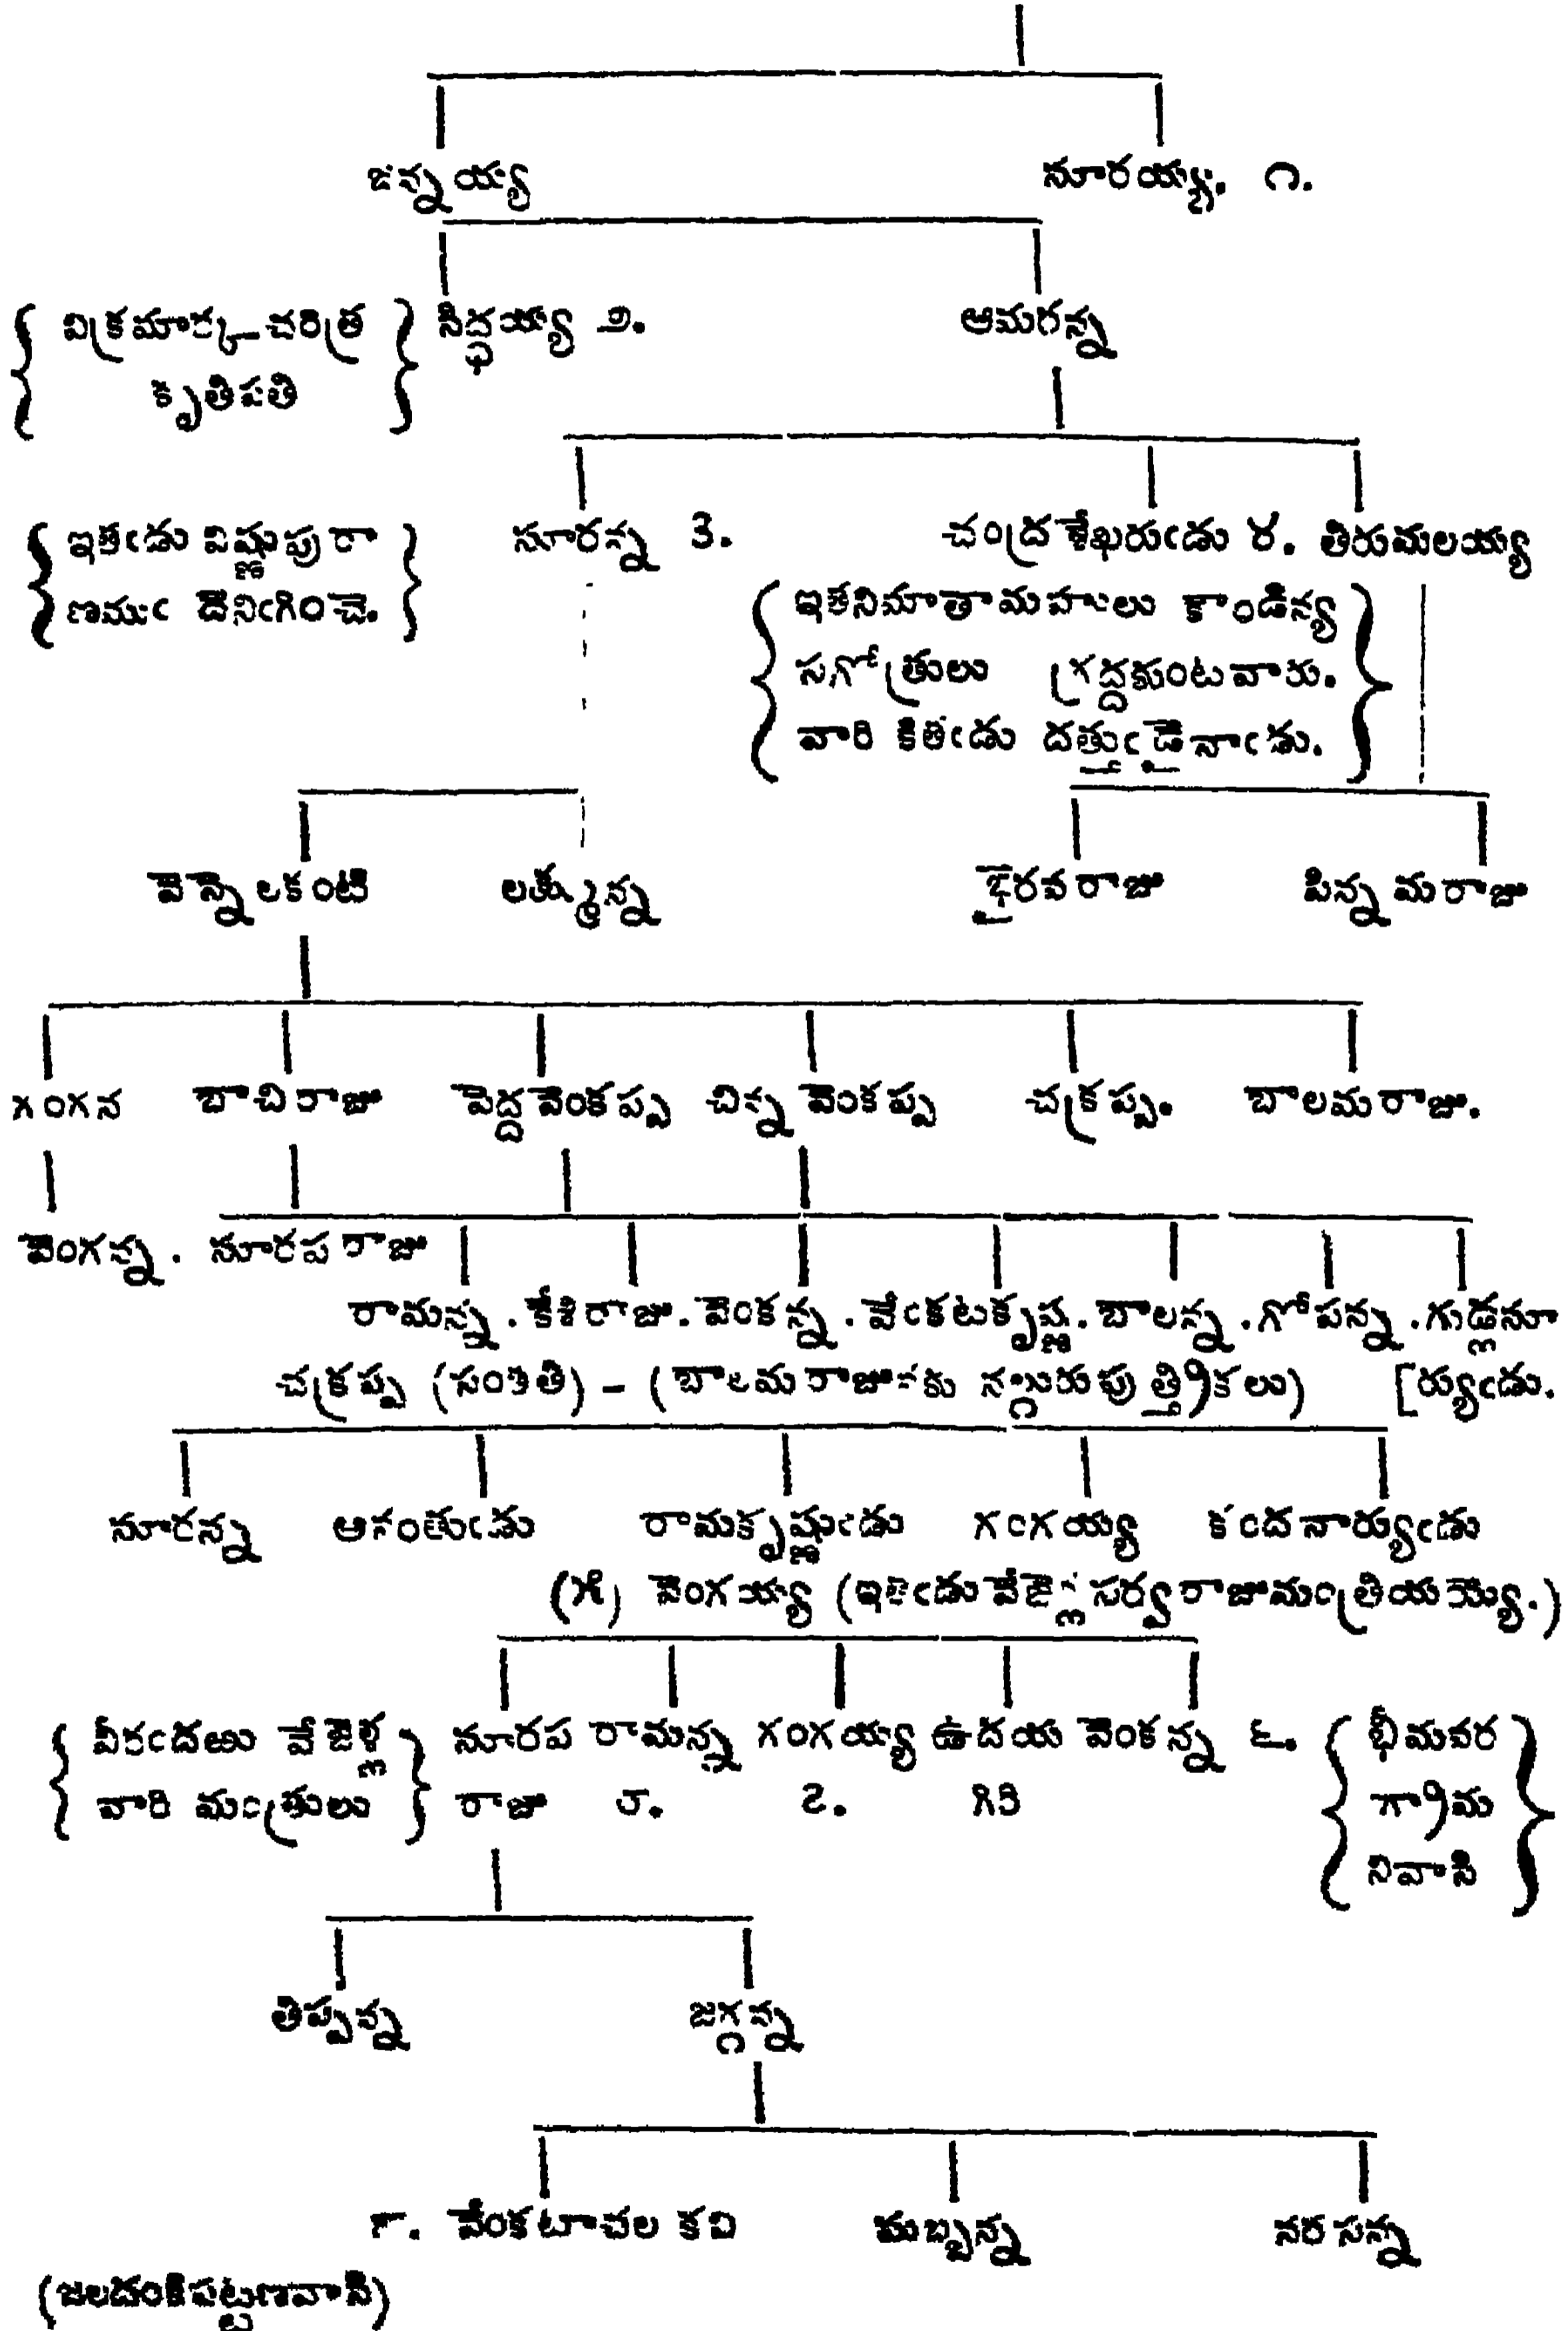 జన్నయ్య సూరయ్య. ౧.
{ విక్రమార్క-చరిత్ర } సిద్ధయ్య ౨. ఆమగన్న
కృతిపతి
{ ఇతఁడు విష్ణుపురా } సూరన్న 3. చంద్రశేఖరుఁడు ౪. తిరుమలయ్య
ణముఁ దెనిఁగించె.
{ ఇతనిమాతామహులు కాండిన్య
సగోత్రులు గ్రద్దకుంటవారు.
వారి కితఁడు దత్తుఁడైనాఁడు. }
వెన్నెలకంటి లక్ష్మన్న భైరవరాజు పిన్నమరాజు
గంగన బాచిరాజు పెద్దవెంకప్ప చిన్నవెంకప్ప చక్రప్ప. బాలమరాజు.
వెంగన్న. సూరపరాజు
రామన్న. కేశిరాజు. వెంకన్న. వేంకటకృష్ణ. బాలన్న. గోపన్న. గుడ్లసూ
చక్రప్ప (సంతతి) – (బాలమరాజునకు నల్గురుపుత్త్రికలు) [ర్యుఁడు.
సూరన్న అనంతుఁడు రామకృష్ణుఁడు గంగయ్య కందనార్యుఁడు
(౫) వెంగయ్య (ఇతఁడువేజెళ్లసర్వరాజుమంత్రియయ్యె.)
{ వీరందఱు వేజెళ్ల } సూరప రామన్న గంగయ్య ఉదయ వెంకన్న ౬. { భీమవర
వారి మంత్రులు రాజు ౮. ౭. గిరి గ్రామ
నివాసి }
తిప్పన్న జగ్గన్న
౯. వేంకటాచల కవి సుబ్బన్న నరసన్న
(జలదంకిపట్టణవాసి)